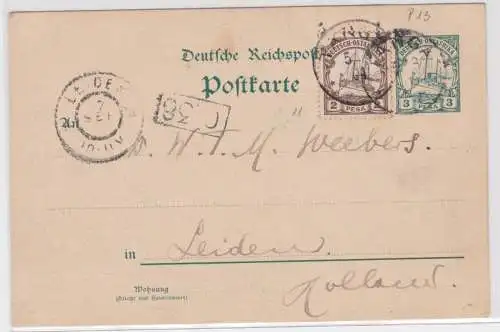 P13
Deutsche Reichspost
Postkarte
DEUTSCH-OSTAFRIKA
2 PESA
DEUTSCH-OSTAFRIKA
3 3
An
W. T. M. Weebers.
in Leiden.
Holland.
Wohnung
(Straße und Hausnummer)